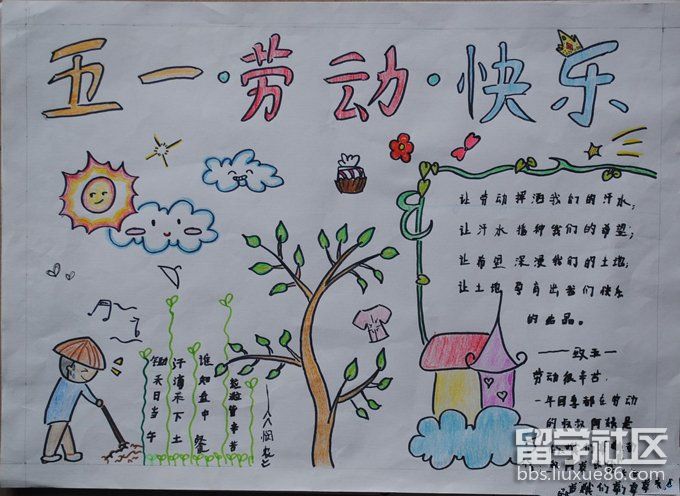 五一·劳动·快乐
让劳动挥洒我们的汗水;
让汗水播种我们的希望;
让希望深漫我们的土地;
让土地孕育出我们快乐
的出品。
——致五一
劳动很辛苦,
一年四季都在劳动
的叔叔阿姨是
锄禾日当午
汗滴禾下土
谁知盘中餐
粒粒皆辛苦
留学社区
bbs.liuxue86.com